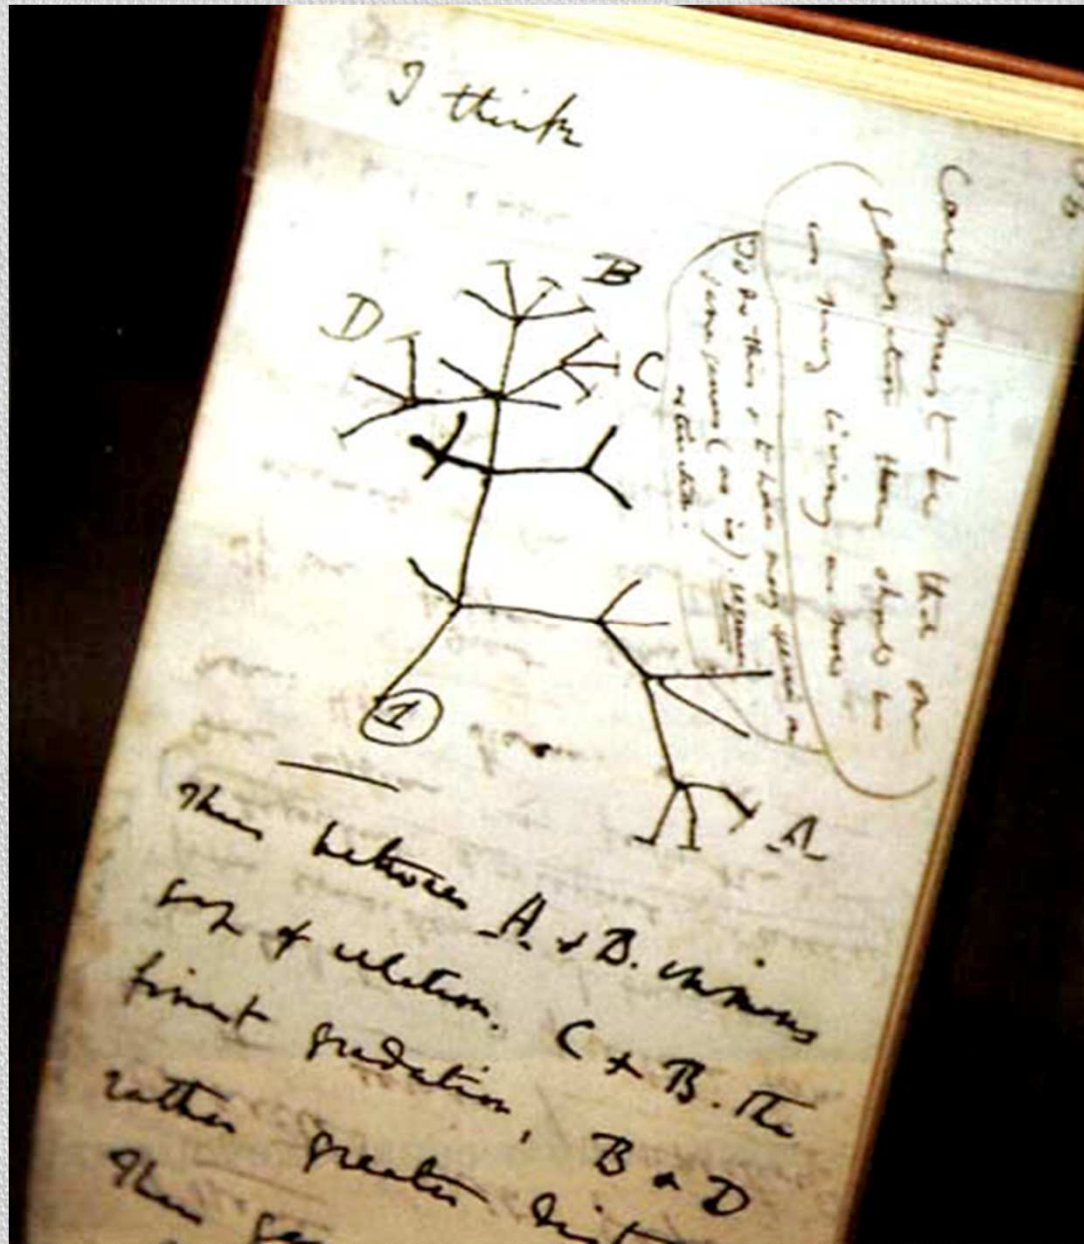 I think
B
D
C
A
1
Case must be that one
generation then should be
as many living as now
To do this & to have many species in
same genus (as is). requires
extinction.
Thus between A & B. immense
gap of relation. C & B. The
finest gradation, B & D
rather greater
Thus